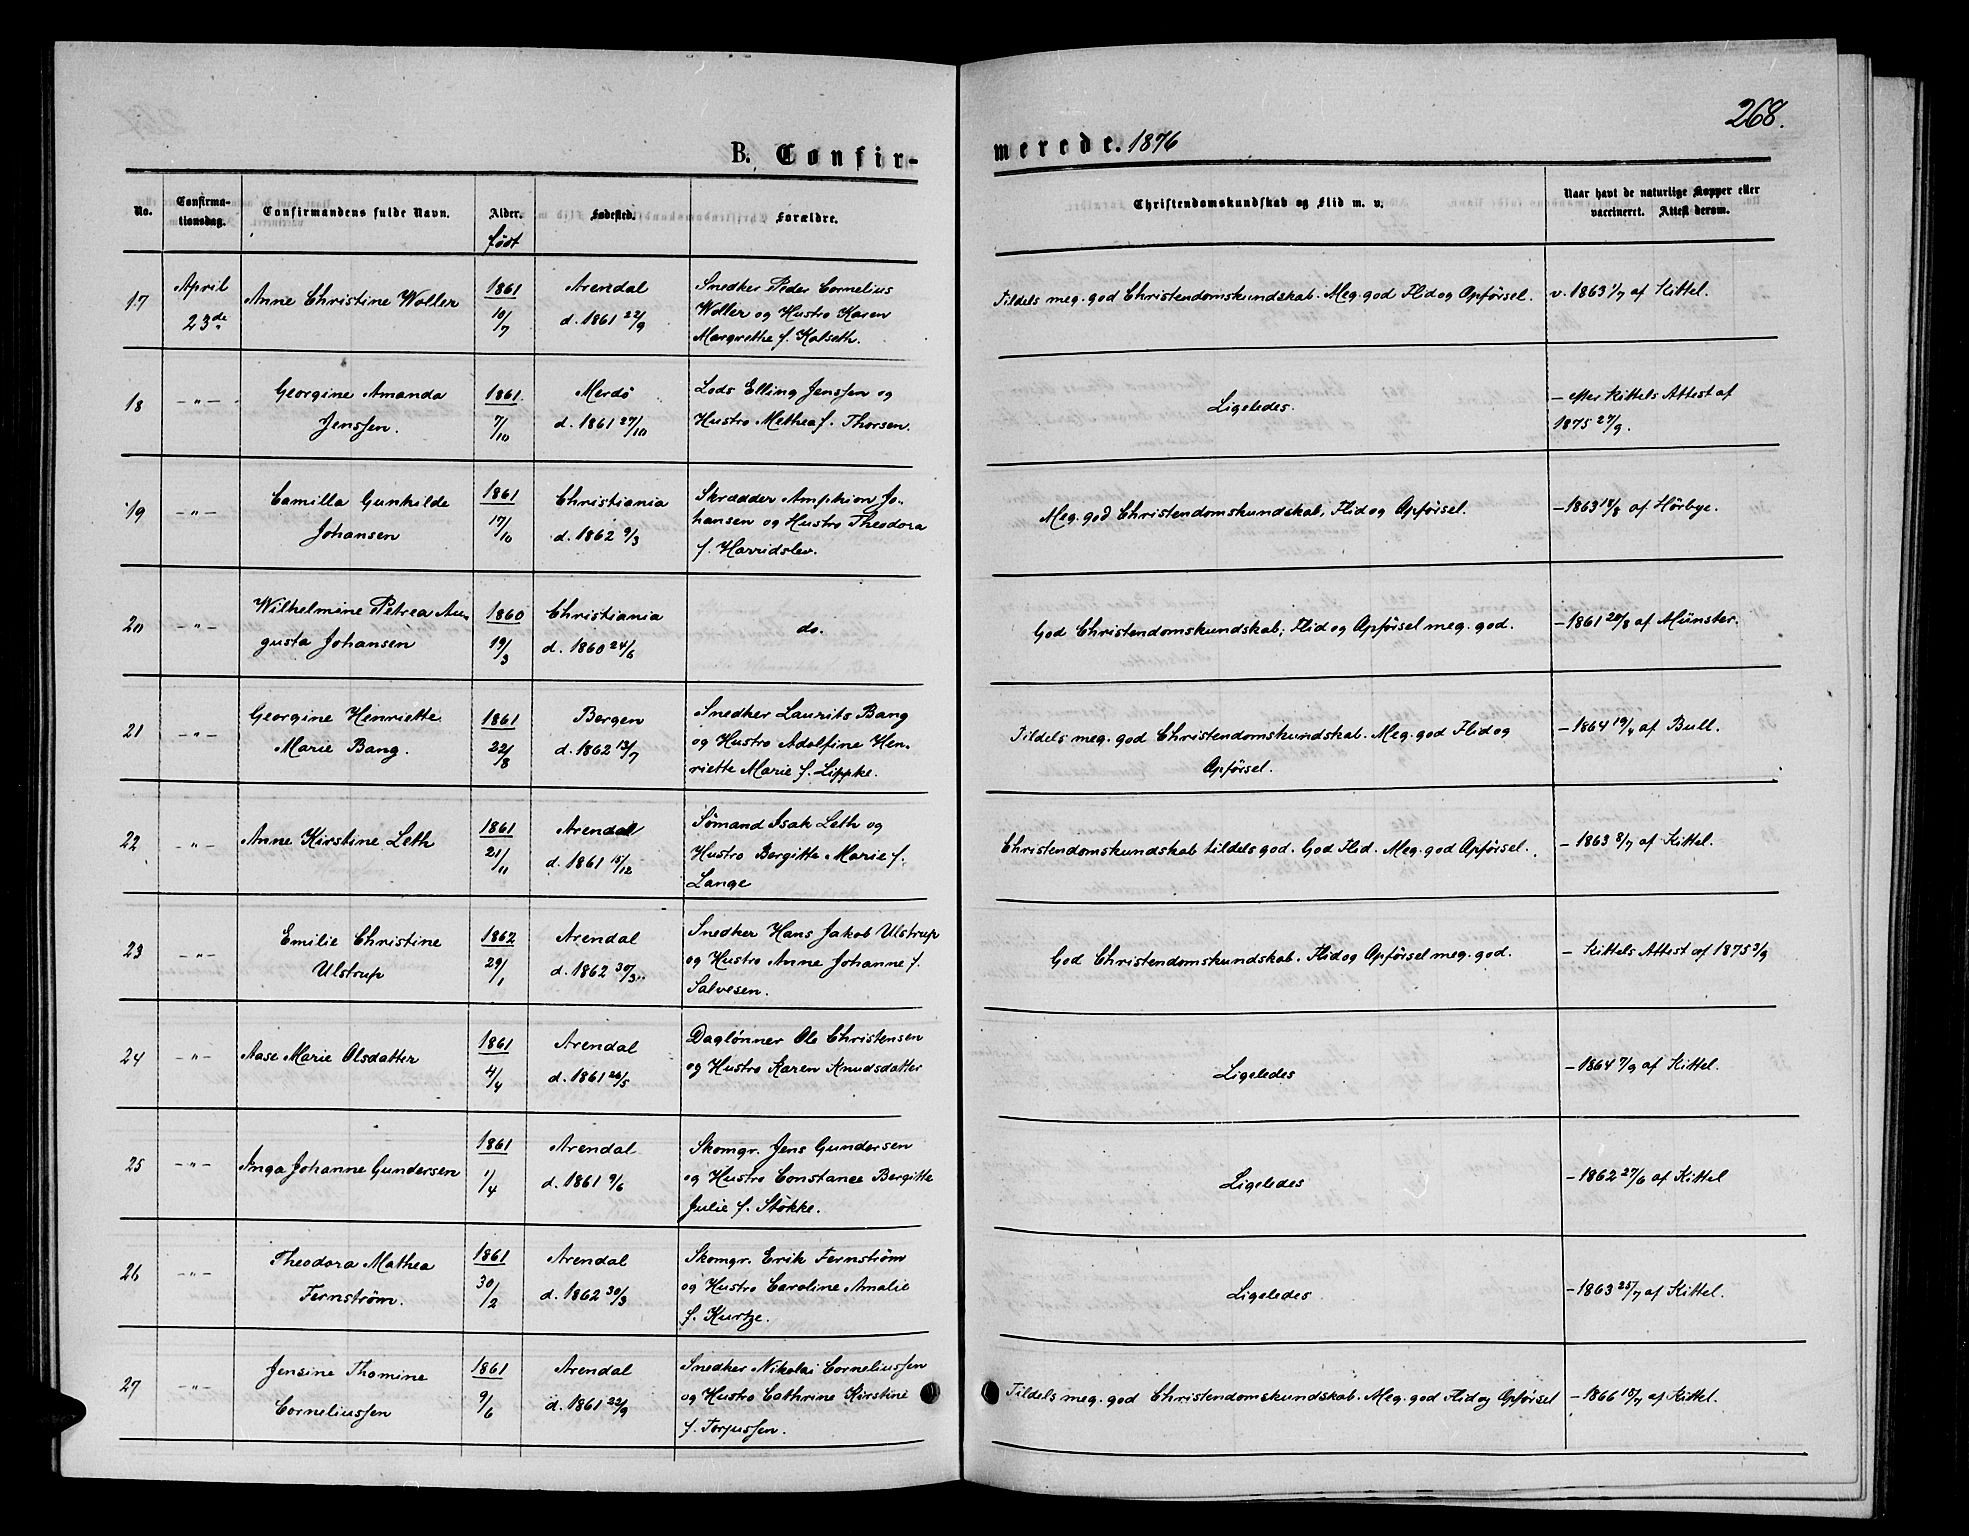 268.
B. Confir-
merede. 1876
No.
Confirma-
tionsdag.
Confirmandens fulde Navn.
Alder.
født
Fødested.
Forældre.
Christendomskundskab og Flid m. v.
Naar havt de naturlige Kopper eller
vaccineret. Attest derom.
17
April
23de
Anne Christine Woller
1861
10/7
Arendal
d. 1861 22/9
Snedker Peder Cornelius
Woller og Hustro Karen
Margrethe f. Kalseth.
Tildels meg. god Christendomskundskab. Meg. god Flid og Opførsel.
v. 1863 1/7 af Kittel.
18
— " —
Georgine Amanda
Jenssen.
1861
7/10
Merdø
d. 1861 27/10
Lods Elling Jenssen og
Hustro Methea f. Thorsen.
Ligeledes.
— efter Kittels Attest af
1875 27/9.
19
— " —
Camilla Gunhilde
Johansen
1861
17/10
Christiania
d. 1862 9/3
Skrædder Amphion Jo-
hansen og Hustro Theodora
f. Harridslev.
Meg. god Christendomskundskab, Flid og Opførsel.
— 1863 18/8 af Hörbye.
20
— " —
Wilhelmine Petrea Au-
gusta Johansen
1860
19/3
Christiania
d. 1860 24/6
do.
God Christendomskundskab; Flid og Opførsel meg. god.
— 1861 20/8 af Münster.
21
— " —
Georgine Henriette
Marie Bang.
1861
22/8
Bergen
d. 1862 13/7
Snedker Laurits Bang
og Hustro Adolfine Hen-
riette Marie f. Lippke.
Tildels meg. god Christendomskundskab. Meg. god Flid og
Opførsel.
— 1864 19/4 af Bull.
22
— " —
Anne Kirstine Leth
1861
21/11
Arendal
d. 1861 15/12
Sømand Isak Leth og
Hustro Bergitte Marie f.
Lange
Christendomskundskab tildels god. God Flid. Meg. god Opførsel.
— 1863 8/7 af Kittel.
23
— " —
Emilie Christine
Ulstrup
1862
29/1
Arendal
d. 1862 30/3
Snedker Hans Jakob Ulstrup
og Hustro Anne Johanne f.
Salvesen.
God Christendomskundskab. Flid og Opførsel meg. god.
— Kittels Attest af 1875 3/9
24
— " —
Aase Marie Olsdatter
1861
4/4
Arendal
d. 1861 26/5
Dagløner Ole Christensen
og Hustro Karen Knudsdatter
Ligeledes
— 1864 7/9 af Kittel.
25
— " —
Inga Johanne Gundersen
1861
1/4
Arendal
d. 1861 9/6
Skomgr. Jens Gundersen
og Hustro Constance Bergitte
Julie f. Støkke.
Ligeledes
— 1862 27/6 af Kittel
26
— " —
Theodora Mathea
Fernstrøm.
1861
30/2
Arendal
d. 1862 30/3
Skomgr. Erik Fernstrøm
og Hustro Caroline Amalie
f. Kurtze.
Ligeledes
— 1863 25/7 af Kittel.
27
— " —
Jensine Thomine
Corneliussen
1861
9/6
Arendal
d. 1861 22/9
Snedker Nikolai Corneliussen
og Hustro Cathrine Kirstine
f. Torjussen.
Tildels meg. god Christendomskundskab. Meg. god Flid og Opførsel
— 1866 18/7 af Kittel.